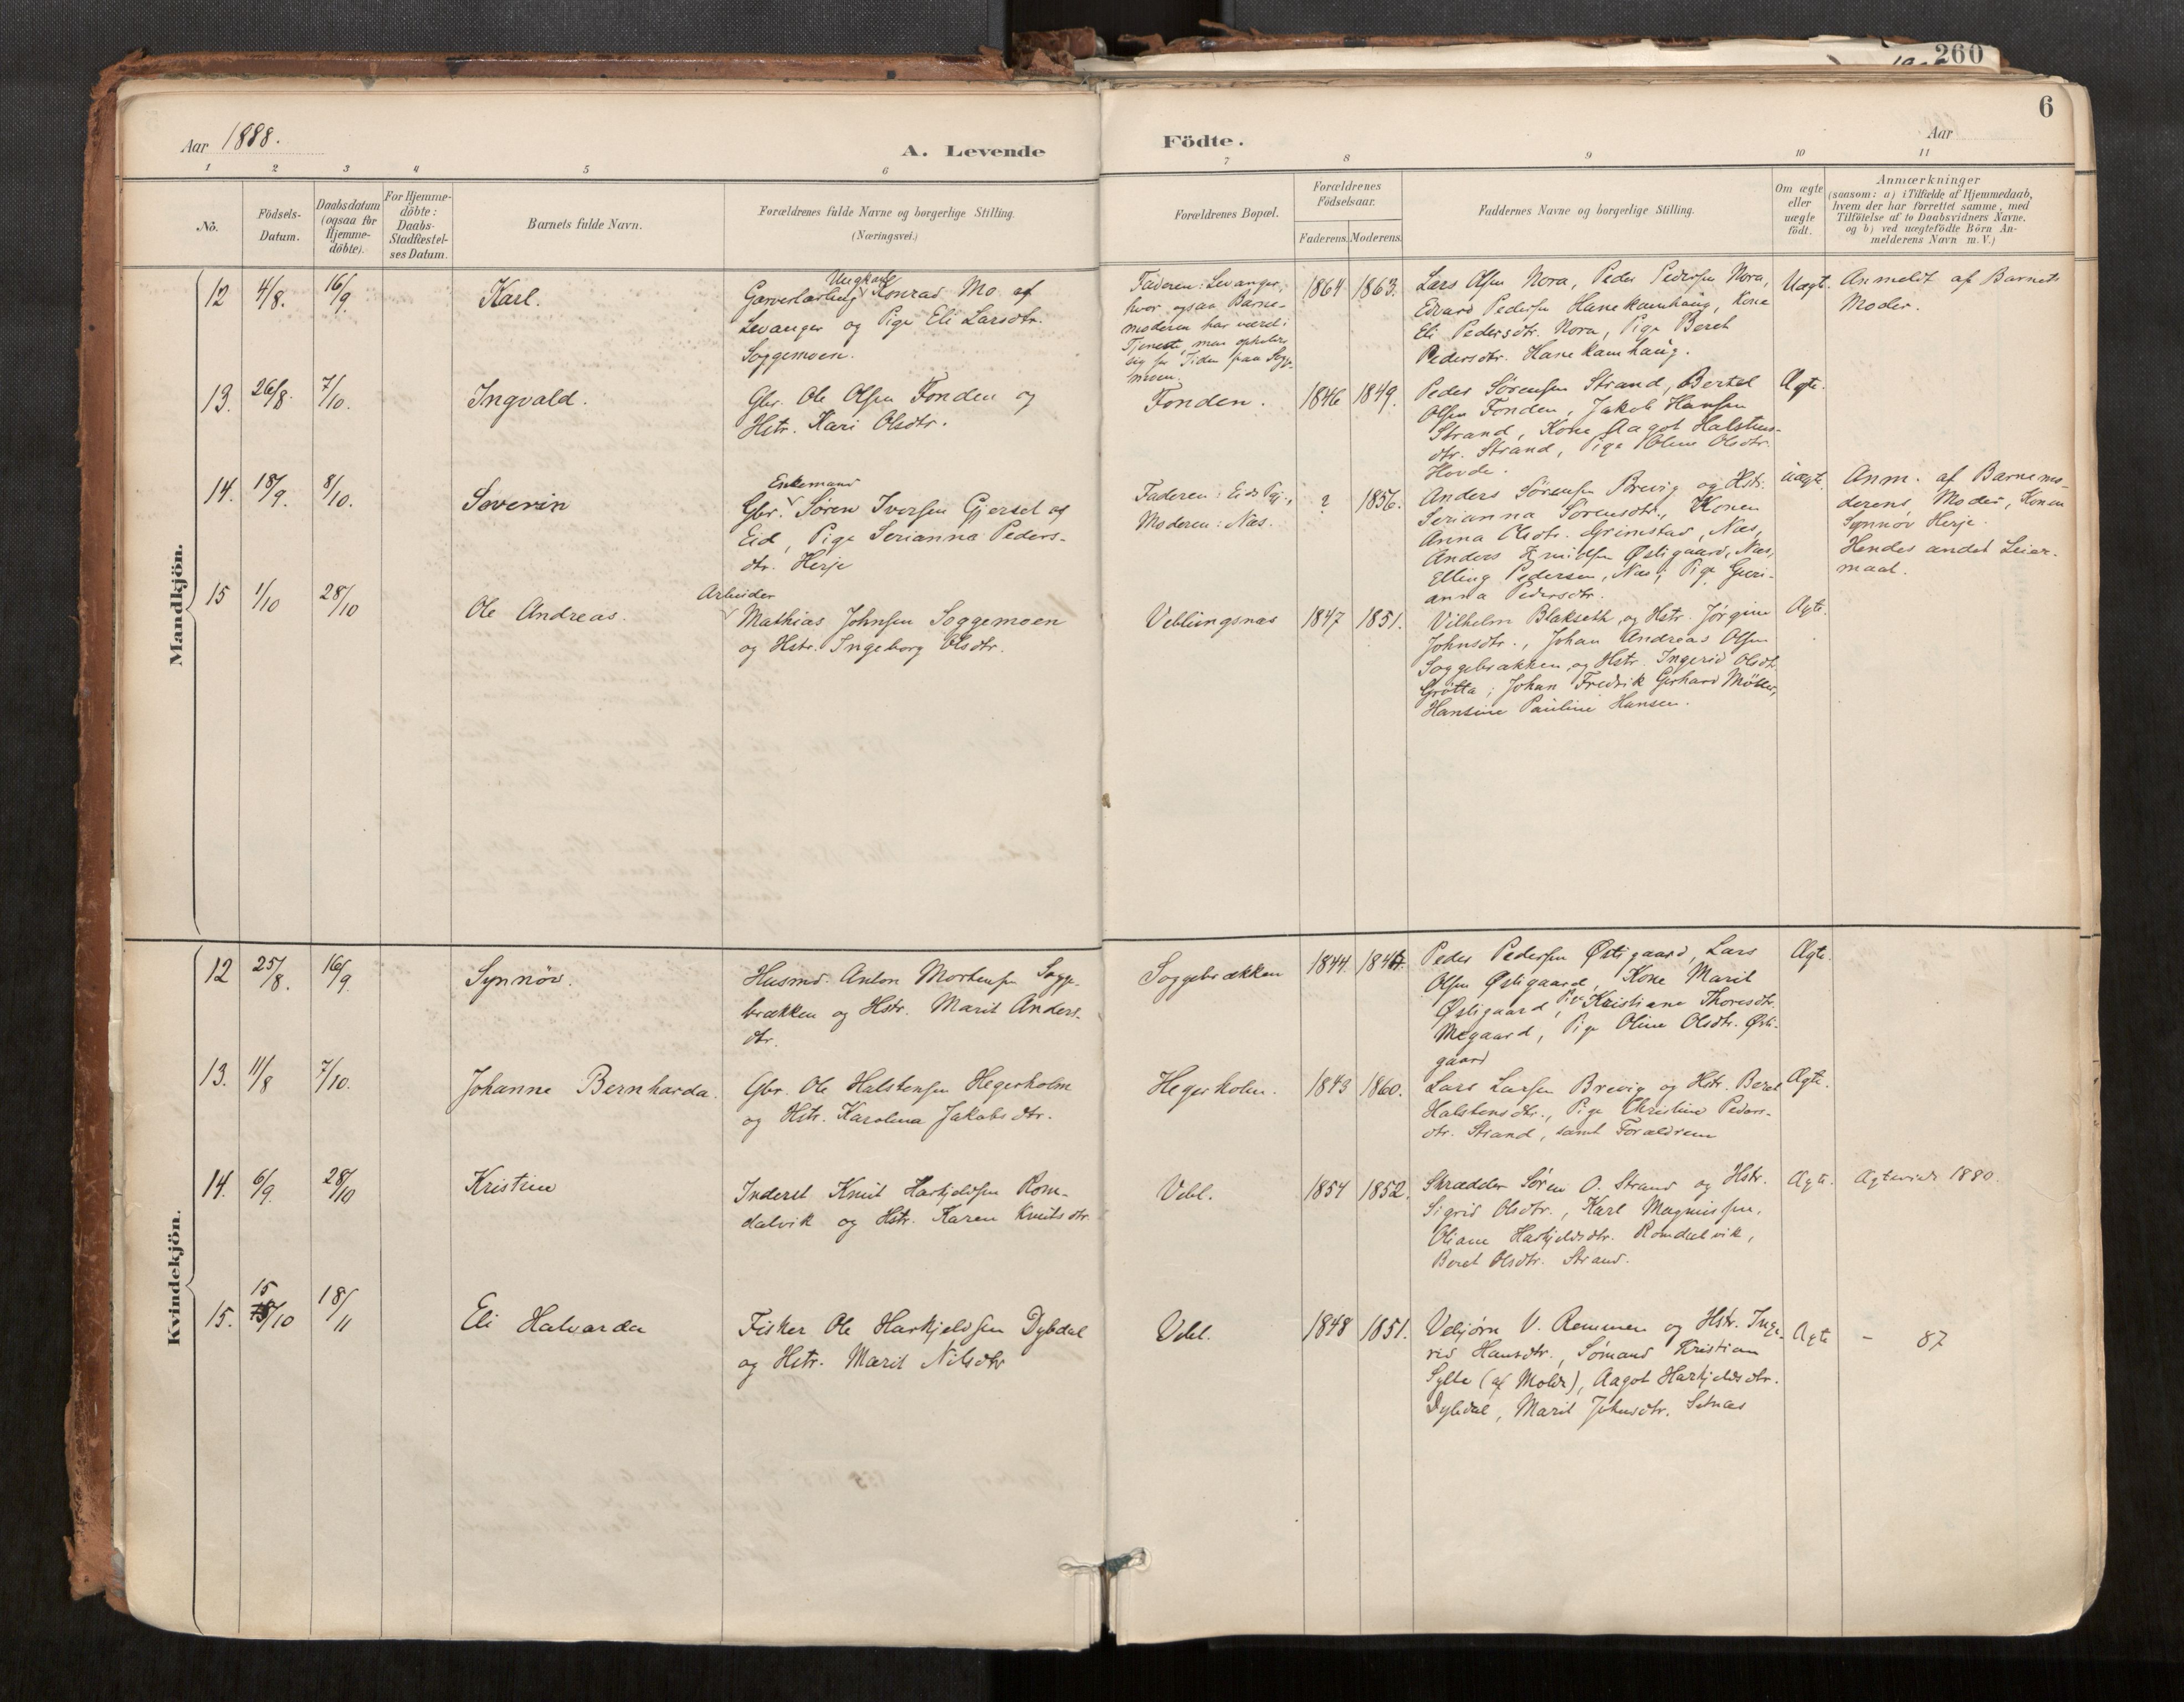 260
6
Aar 1888.
A. Levende
Födte.
Aar
1
2
3
4
5
6
7
8
9
10
11
No.
Födsels-
Datum.
Daabsdatum
(ogsaa for
Hjemme-
döbte).
For Hjemme-
döbte:
Daabs-
Stadfæstel-
ses Datum.
Barnets fulde Navn.
Forældrenes fulde Navne og borgerlige Stilling.
(Næringsvei.)
Forældrenes Bopæl.
Forældrenes
Födselsaar.
Faderens.
Moderens.
Faddernes Navne og borgerlige Stilling.
Om ægte
eller
uægte
födt.
Anmærkninger
(saasom: a) i Tilfælde af Hjemmedaab,
hvem der har forrettet samme, med
Tilföielse af to Daabsvidners Navne.
og b) ved uægtefödte Börn An-
melderens Navn m. V.)
Mandkjön.
12
4/8.
16/9.
Karl.
Ungkarl
Garverlærling Konrad Mo af
Levanger og Pige Eli Larsdtr.
Soggemoen.
Faderen: Levanger,
hvor ogsaa Barne-
moderen har været i
Tjeneste, men opholder
sig for Tiden paa Sogge-
moen.
1864
1863.
Lars Olsen Nora, Peder Pedersen Nora,
Edvard Pedersen Hanekamhaug, Kone
Eli Pedersdtr. Nora, Pige Beret
Pedersdtr. Hanekamhaug.
Uægt.
Anmeldt af Barnets
Moder.
13.
26/8.
7/10.
Ingvald.
Gbr. Ole Olsen Fonden og
Hstr. Kari Olsdtr.
Fonden.
1846
1849.
Peder Sørensen Strand, Bertel
Olsen Fonden, Jakob Hansen
Strand, Kone Aagot Halstens-
dtr. Strand, Pige Oline Olsdtr.
Hovde.
Ægte.
14.
18/9.
8/10.
Severin
Enkemand
Gbr. Søren Iversen Gjerset af
Eid, Pige Serianna Peders-
dtr. Herje
Faderen: Eids Pgj.,
Moderen: Næs.
?
1856.
Anders Sørensen Brevig og Hstr.
Serianna Sørensdtr., Konen
Anna Olsdtr. Grimstad, Næs,
Anders Østigaard, Næs,
Elling Pedersen, Næs, Pige Guri-
anna Pedersdtr.
uægte.
Anm. af Barnemo-
derens Moder, Konen
Synnøv Herje.
Hendes andet Leier-
maal.
15
1/10
28/10
Ole Andreas.
Arbeider
Mathias Johnsen Soggemoen
og Hstr. Ingeborg Olsdtr.
Veblungsnæs
1847
1851.
Vilhelm Blakseth og Hstr. Jørgine
Johnsdtr., Johan Andreas Olsen
Soggebrækken og Hstr. Ingerid Olsdtr.
Grøtta; Johan Fredrik Gerhard Møller,
Hansine Pauline Hansen.
Ægte.
Kvindekjön.
12
25/8.
16/9
Synnöv.
Husmd. Anton Mortensen Sogge-
brækken og Hstr. Marit Anders-
dtr.
Soggebrækken
1844
Peder Pedersen Østigaard, Lars
Olsen Østigaard, Kone Marit
Østigaard, Pige Kristiane Thoresdtr.
Megaard, Pige Oline Olsdtr. Østi-
gaard
Ægte.
13.
11/8
7/10.
Johanne Bernharda.
Gbr. Ole Halstensen Hegerholm
og Hstr. Karolina Jakobsdtr.
Hegerholm.
1843
1860.
Lars Larsen Brevig og Hstr. Beret
Halstensdtr., Pige Christine Peders-
dtr. Strand, samt Forældrene
Ægte.
14.
6/9.
28/10
Kristine
Inderst Knut Harkjeldsen Rom-
dalvik og Hstr. Karen Knutsdtr.
Vebl.
1854
1852.
Skrædder Søren O. Strand og Hstr.
Sigrid Olsdtr., Karl Magnussen,
Oliane Harkjeldsdtr. Romdalvik,
Beret Olsdtr. Strand.
Ægte.
Ægteviede 1880.
15.
15
/10
18/11
Eli Halvarda
Fisker Ole Harkjeldsen Dybdal
og Hstr. Marit Nilsdtr
Vebl.
1848
1851.
Vebjørn V. Remmen og Hstr. Inge-
rid Hansdtr., Sømand Kristian
Sylte (af Molde), Aagot Harkjeldsdtr.
Dybdal, Marit Johnsdtr. Setnæs
Ægte
- 87